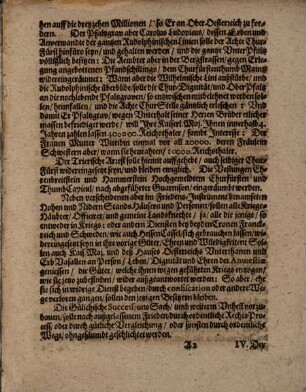 hen auff die dreyzehen Millionen / so Er an Ober-Oesterreich zu for-
dern. Der Pfaltzgraw aber Carolus Ludovicus / dessen Erben und
Anverwandte der gantzen Rudolphinischen Linien solle der Achte Chur-
Fürst hinfüro seyn / und gehalten werden / und die gantze Unter Pfaltz
völliglich besitzen: Die Aembter aber in der Bergstrassen / gegen Erle-
gung angebottenen Pfandschillings / dem Churfürstenthumb Maintz
widereingeraumet: Wann aber die Wilhelmische Lini außstürbe / und
die Rudolphinische überblibe / solle die Chur-Dignität / und Ober-Pfaltz
an die nechlebende Pfaltzgrawen / so zwischen mit belehnet werden sol-
len / heimfallen / und die Achte Chur-Stelle gäntzlich erlöschen: Und
damit Er Pfaltzgraw / wegen Unterhalt seiner Herren Brüder etlicher
massen befridiget werde / will Ihme Kaiserl. Maj. Jhnen innerhalb 4.
Jahren zahlen lassen 400000. Reichsthaler / sambt Interesse: Der
Frauen Mutter Wittiben einmal vor all 20000. deren Fräulein
Schwestern aber / wann sie heurathen / 10000. Reichsthaler.
Der Trierische Arrest solle hiemit auffgehebt / auch selbiger Chur-
Fürst widereingesetzt seyn / und bleiben ewiglich. Die Vestungen Eh-
renbreitstein und Hammerstein Hochgemeldten Churfürsten und
Thumb-Capitul / nach abgeführter Guarnison / eingeraumbt werden.
Neben verschribenen aber im Friedens-Instrument benannten
Hohen und Nidern Stands Häusern und Personen / sollen alle Kriegs-
Häubter / Officierer / und gemeine Landsknechte / ja / alle die jenige / so
entweder in Kriegs- oder andern Diensten bey den Cronen Franck-
reich und Schweden / wie auch Hessen-Cassel / sich gebrauchen lassen /
widereingesetzt seyn in ihre vorige Güter / Ehren und Würdigkeiten: Sol-
len auch Kais. Maj. und des Hauses Oesterreichs Unterthanen und
Erb-Vasallen an Person / Leben / Dignität und Ehren des Amnestiæ
geniessen / die Güter / welche ihnen wegen geführten Kriegs entzogen /
wie sie jetzo zubefinden / wider außgeantwortet werden. So aber / ehe
sie sich in widrige Dienst begeben / durch confiscation oder andere We-
ge verlohren gangen / sollen den jetzigen Besitzern bleiben.
Die Gülichische Successions Sach / und weitern Unheil vorzu-
bauen / solle nach außgelesenem Frieden / durch ordentliche Rechts-Pro-
cess / oder durch gütliche Vergleichung / oder sonsten durch ordentliche
Wege / ohngesäumbt geschlichtet werden.
A 2 IV. Der